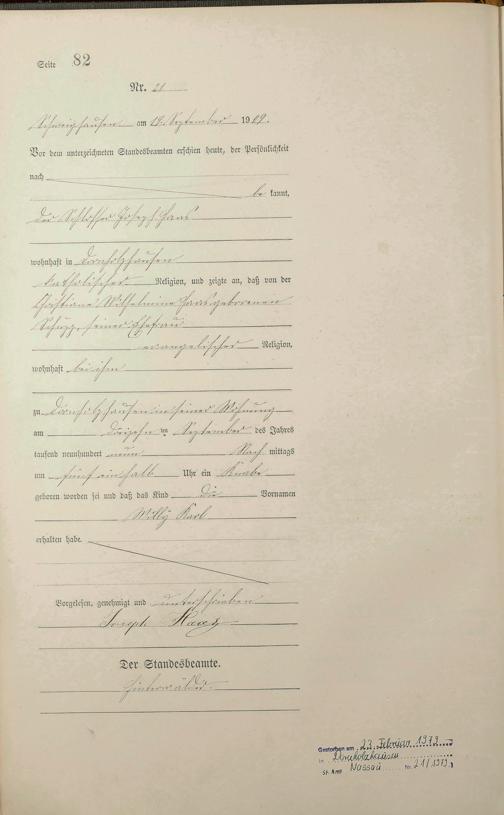 Seite 82
Nr. 21
Schweighausen am 18. September 1909.
Vor dem unterzeichneten Standesbeamten erschien heute, der Persönlichkeit
nach
bekannt,
der Schlosser Joseph Haas
wohnhaft in Dornholzhausen
katholischer Religion, und zeigte an, daß von der
Christiane Wilhelmine Haas geborenen
seiner Ehefrau
evangelischer Religion,
wohnhaft bei ihm
zu Dornholzhausen in seiner Wohnung
am dreizehnten September des Jahres
tausend neunhundert neun Nach mittags
um fünf ein halb Uhr ein Knabe
geboren worden sei und daß das Kind die Vornamen
Willy Karl
erhalten habe.
Vorgelesen, genehmigt und unterschrieben
Joseph Haas
Der Standesbeamte.
Hinterwälder
Gestorben am 23. Februar 1979
in Dornholzhausen
St. Amt Nassau Nr. 21/1979